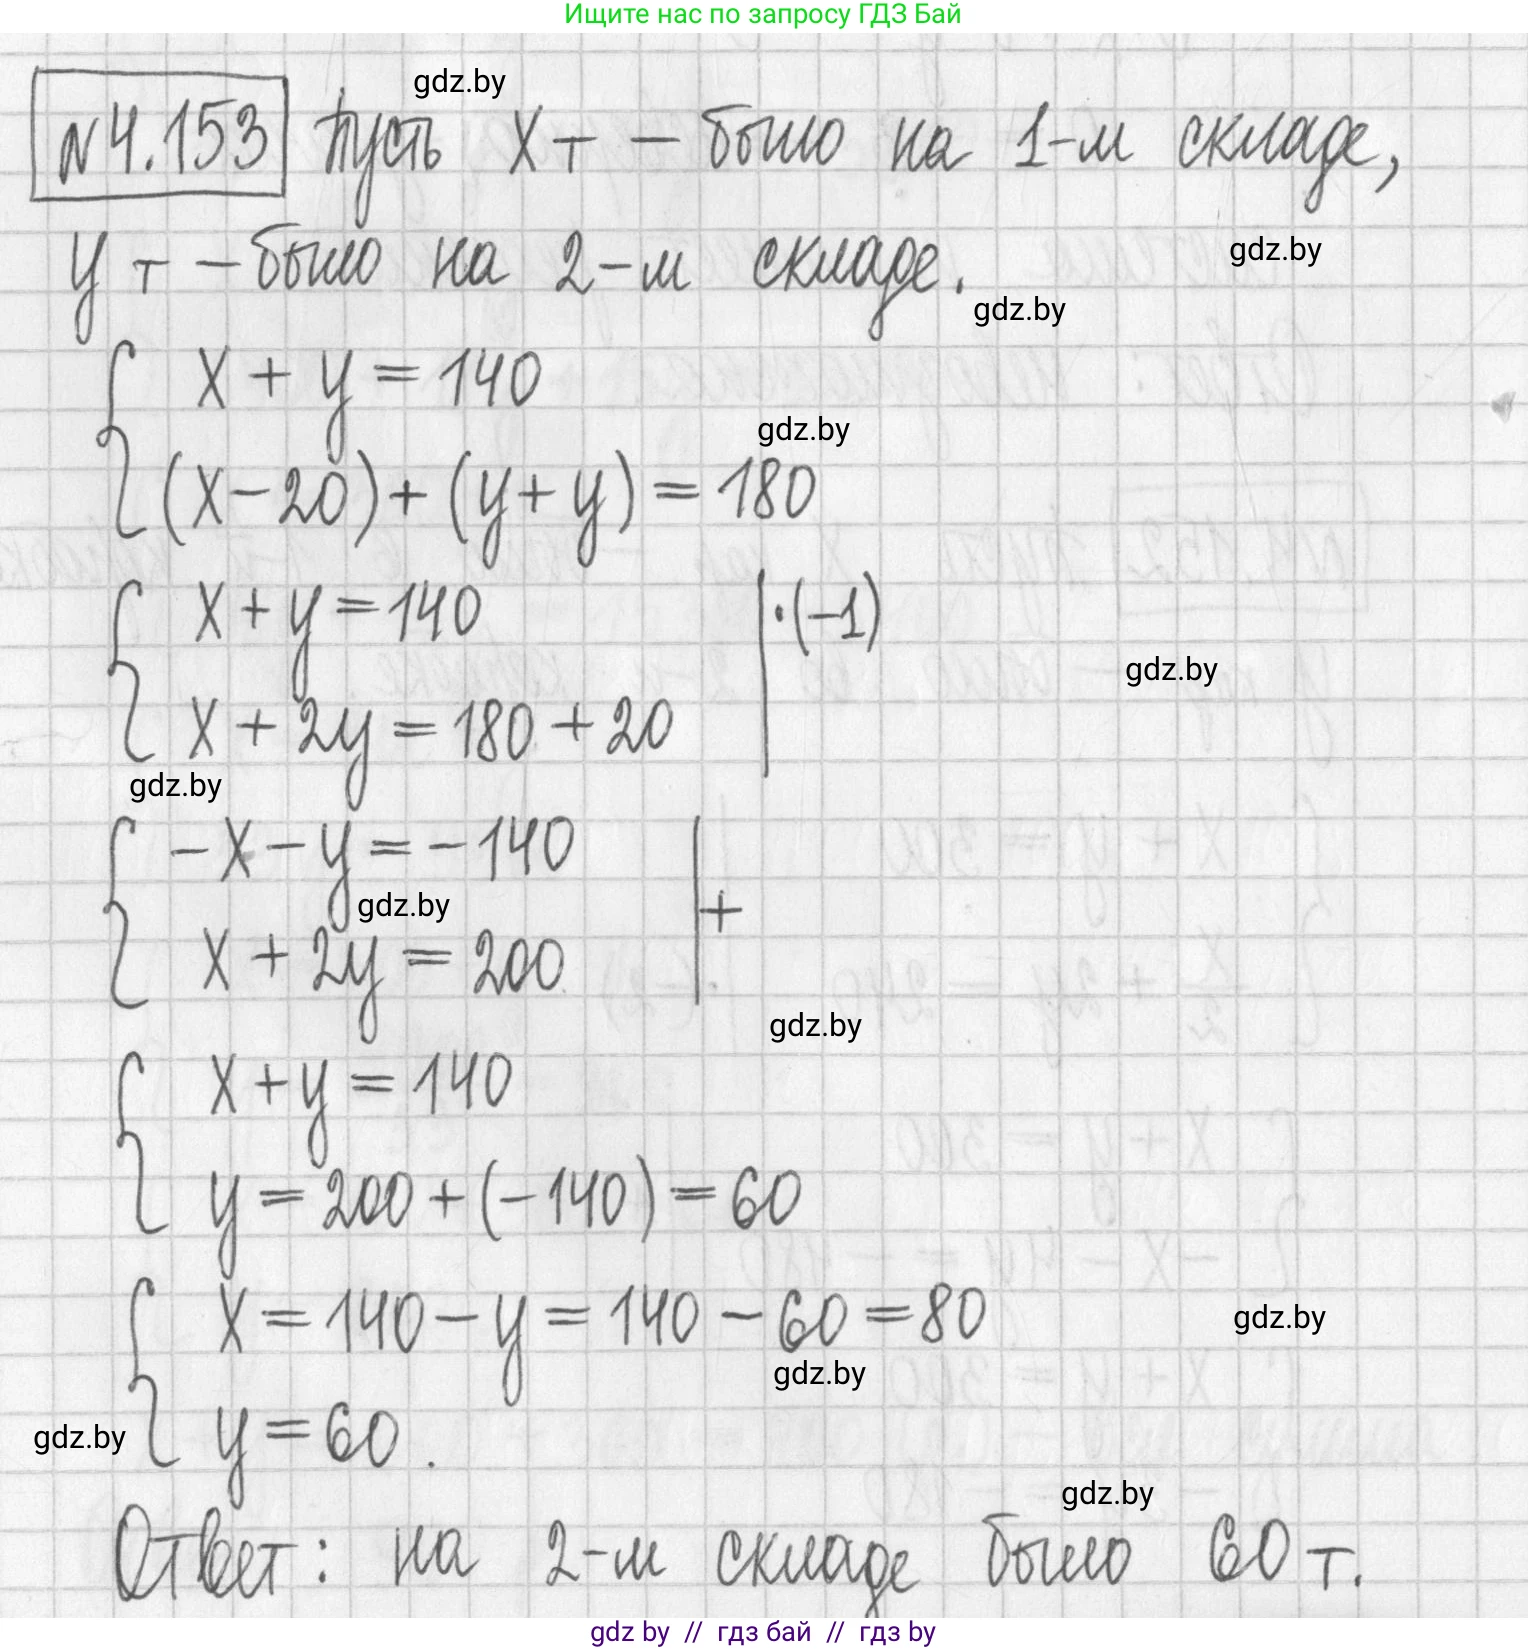 Ищите нас по запросу ГДЗ Бай
gdz.by
№4.153 Пусть x т – было на 1-м складе,
y т – было на 2-м складе.
gdz.by
gdz.by
x + y = 140
gdz.by
(x – 20) + (y + y) = 180
x + y = 140 | · (–1)
gdz.by
x + 2y = 180 + 20
gdz.by
– x – y = – 140
gdz.by
+
x + 2y = 200
gdz.by
x + y = 140
y = 200 + (– 140) = 60
x = 140 – y = 140 – 60 = 80
gdz.by
gdz.by
y = 60.
gdz.by
gdz.by
Ответ: на 2-м складе было 60 т.
gdz by // гдз бай // гдз by